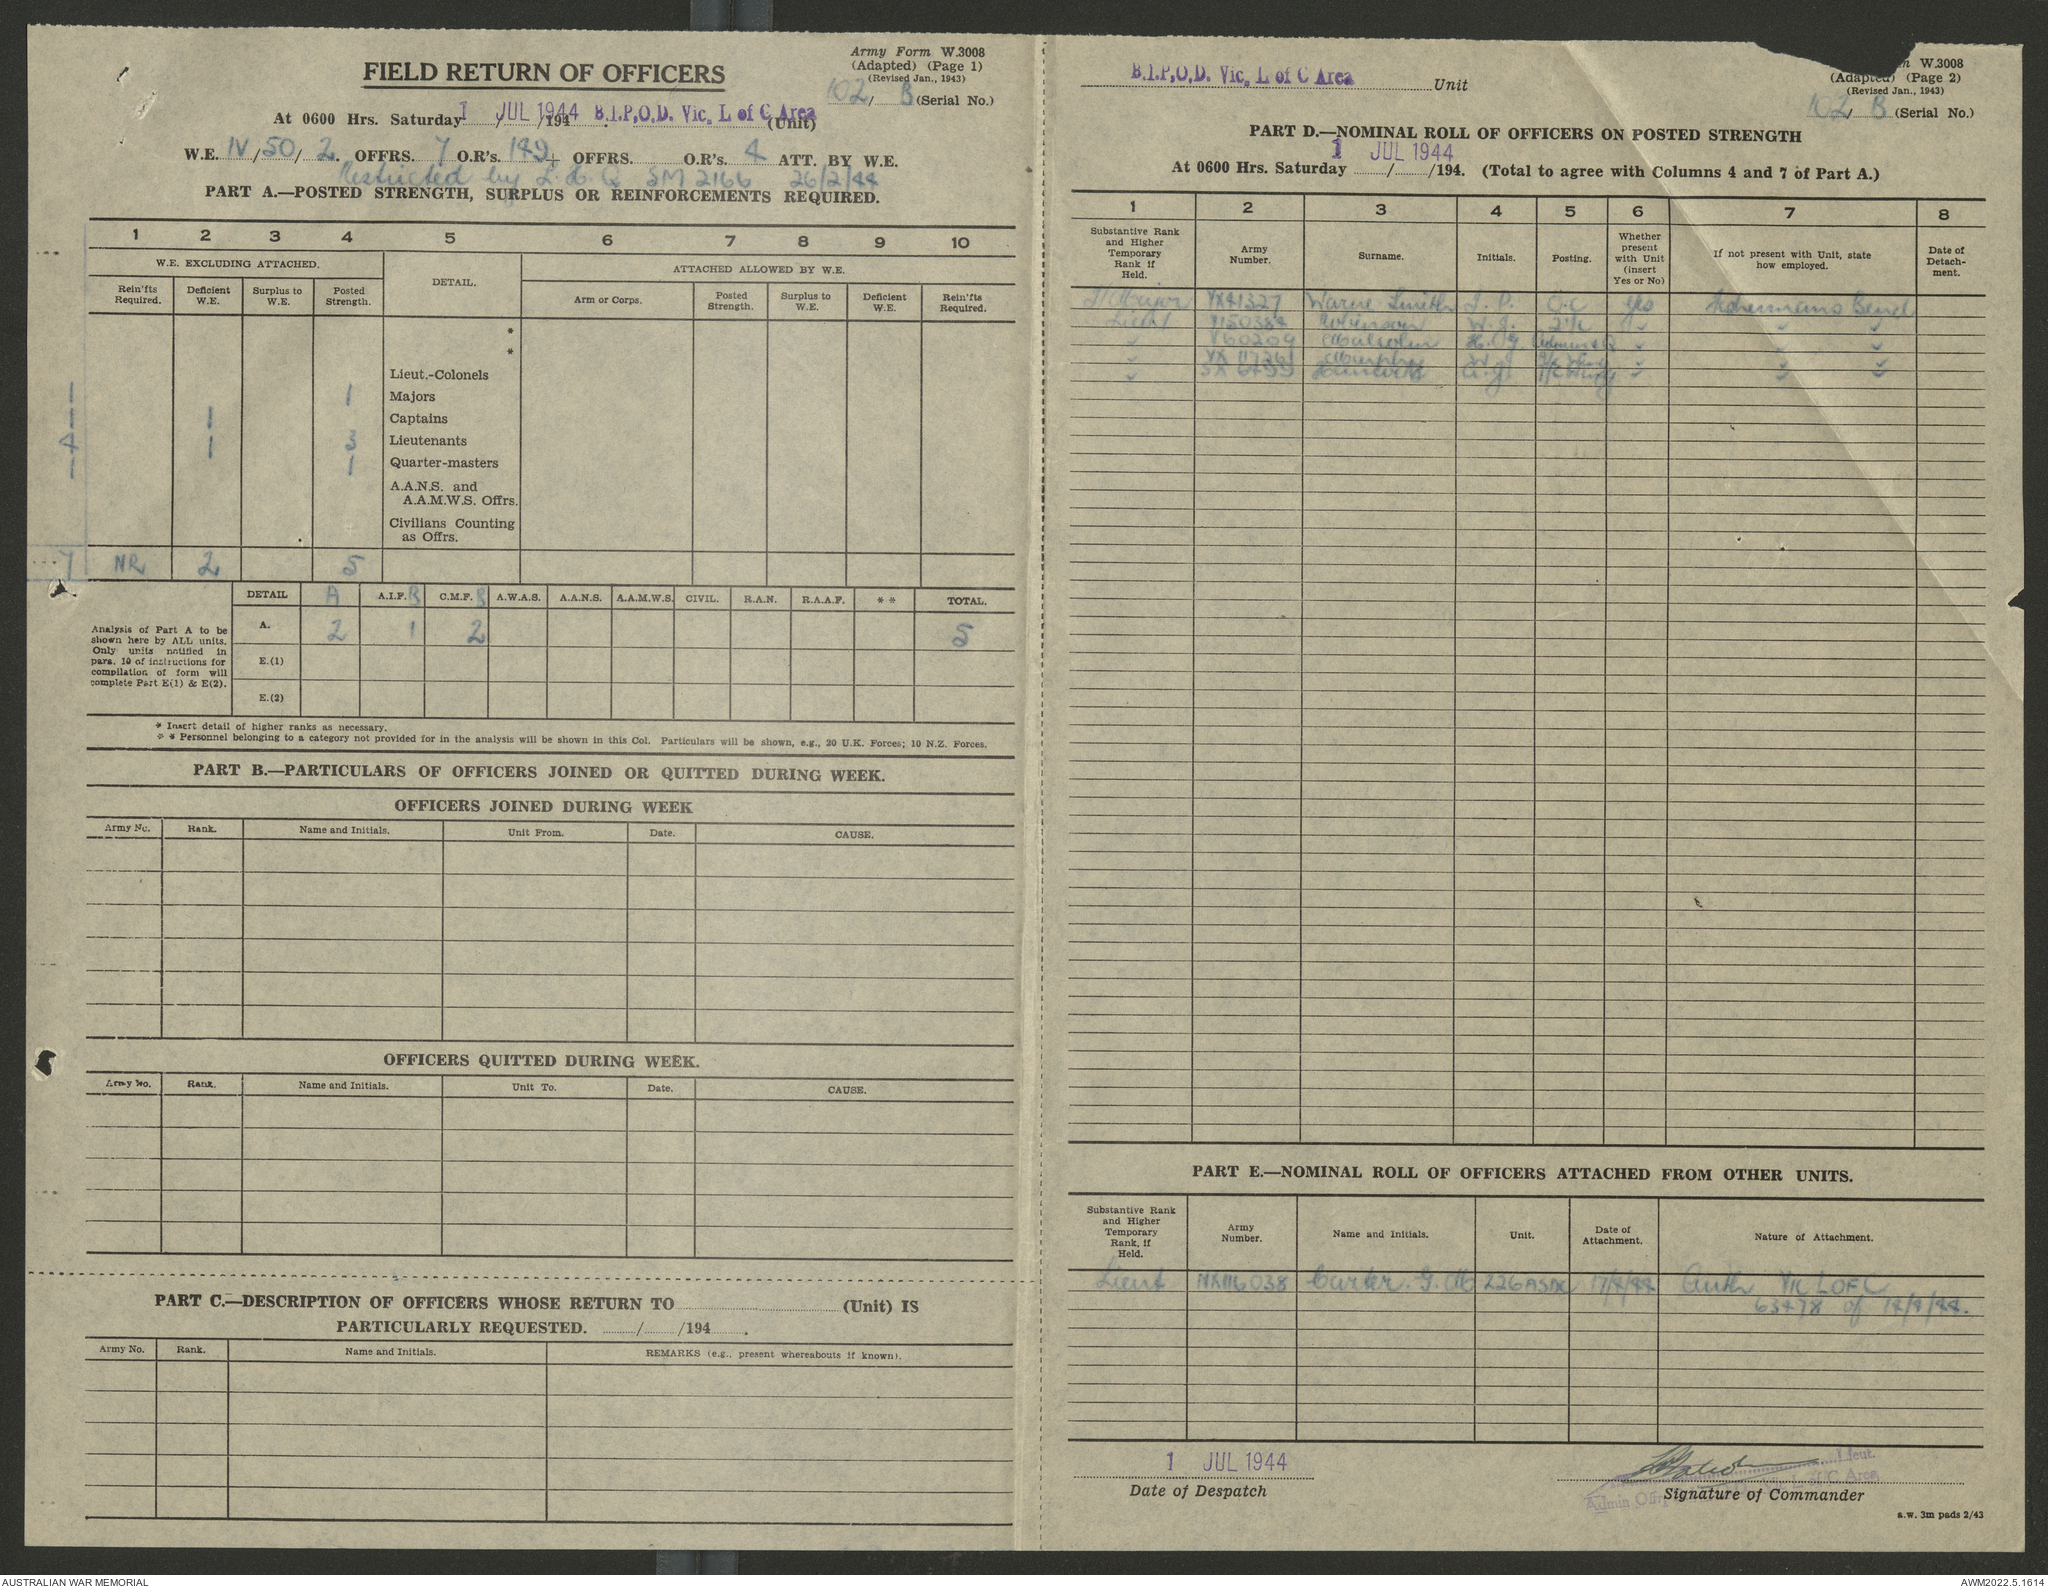 Army Form W.3008
(Adapted) (Page 1)
(Revised Jan., 1943)
FIELD RETURN OF OFFICERS
102/ B (Serial No.)
At 0600 Hrs. Saturday 1 JUL 1944 /194 . B.I.P.O.D. Vic. L of C Area (Unit)
W.E. IV/50/2. OFFRS. 7 O.R's. 149+ OFFRS. O.R's. 4 ATT. BY W.E.
Restricted by L.H.Q. SM 2166 26/2/44
PART A.—POSTED STRENGTH, SURPLUS OR REINFORCEMENTS REQUIRED.
1 2 3 4 5 6 7 8 9 10
W.E. EXCLUDING ATTACHED. DETAIL. ATTACHED ALLOWED BY W.E.
Rein'fts Required. Deficient W.E. Surplus to W.E. Posted Strength. Arm or Corps. Posted Strength. Surplus to W.E. Deficient W.E. Rein'fts Required.
*
*
Lieut.-Colonels
1 1 Majors
1 1 Captains
4 1 3 Lieutenants
1 1 Quarter-masters
A.A.N.S. and
A.A.M.W.S. Offrs.
Civilians Counting
as Offrs.
7 NR 2 5
DETAIL A A.I.F. B C.M.F. B A.W.A.S. A.A.N.S. A.A.M.W.S. CIVIL. R.A.N. R.A.A.F. * * TOTAL.
Analysis of Part A to be
shown here by ALL units.
Only units notified in
para. 10 of instructions for
compilation of form will
complete Part E(1) & E(2).
A. 2 1 2 5
E.(1)
E.(2)
* Insert detail of higher ranks as necessary.
* * Personnel belonging to a category not provided for in the analysis will be shown in this Col. Particulars will be shown, e.g., 20 U.K. Forces; 10 N.Z. Forces.
PART B.—PARTICULARS OF OFFICERS JOINED OR QUITTED DURING WEEK.
OFFICERS JOINED DURING WEEK
Army No. Rank. Name and Initials. Unit From. Date. CAUSE.
OFFICERS QUITTED DURING WEEK.
Army No. Rank. Name and Initials. Unit To. Date. CAUSE.
PART C.—DESCRIPTION OF OFFICERS WHOSE RETURN TO (Unit) IS
PARTICULARLY REQUESTED. / /194 .
Army No. Rank. Name and Initials. REMARKS (e.g., present whereabouts if known).
B.I.P.O.D. Vic. L of C Area Unit
W.3008
(Adapted) (Page 2)
(Revised Jan., 1943)
102/ B (Serial No.)
PART D.—NOMINAL ROLL OF OFFICERS ON POSTED STRENGTH
At 0600 Hrs. Saturday 1 JUL 1944 / /194. (Total to agree with Columns 4 and 7 of Part A.)
1 2 3 4 5 6 7 8
Substantive Rank and Higher Temporary Rank if Held. Army Number. Surname. Initials. Posting. Whether present with Unit (insert Yes or No) If not present with Unit, state how employed. Date of Detachment.
T/Major VX41327 Warne Smith I. P. O.C Yes Fishermans Bend
Lieut V150384 Robinson W. J. 2i/c
V60209 Malcolm
Murphy
PART E.—NOMINAL ROLL OF OFFICERS ATTACHED FROM OTHER UNITS.
Substantive Rank and Higher Temporary Rank, if Held. Army Number. Name and Initials. Unit. Date of Attachment. Nature of Attachment.
Lieut NX116038 Carter. G. M 17/4/44 Auth Vic LOFC
63478 of 14/4/44.
1 JUL 1944
Date of Despatch
Lieut.
Admin Offr L of C Area
Signature of Commander
a.w. 3m pads 2/43
AUSTRALIAN WAR MEMORIAL
AWM2022.5.1614